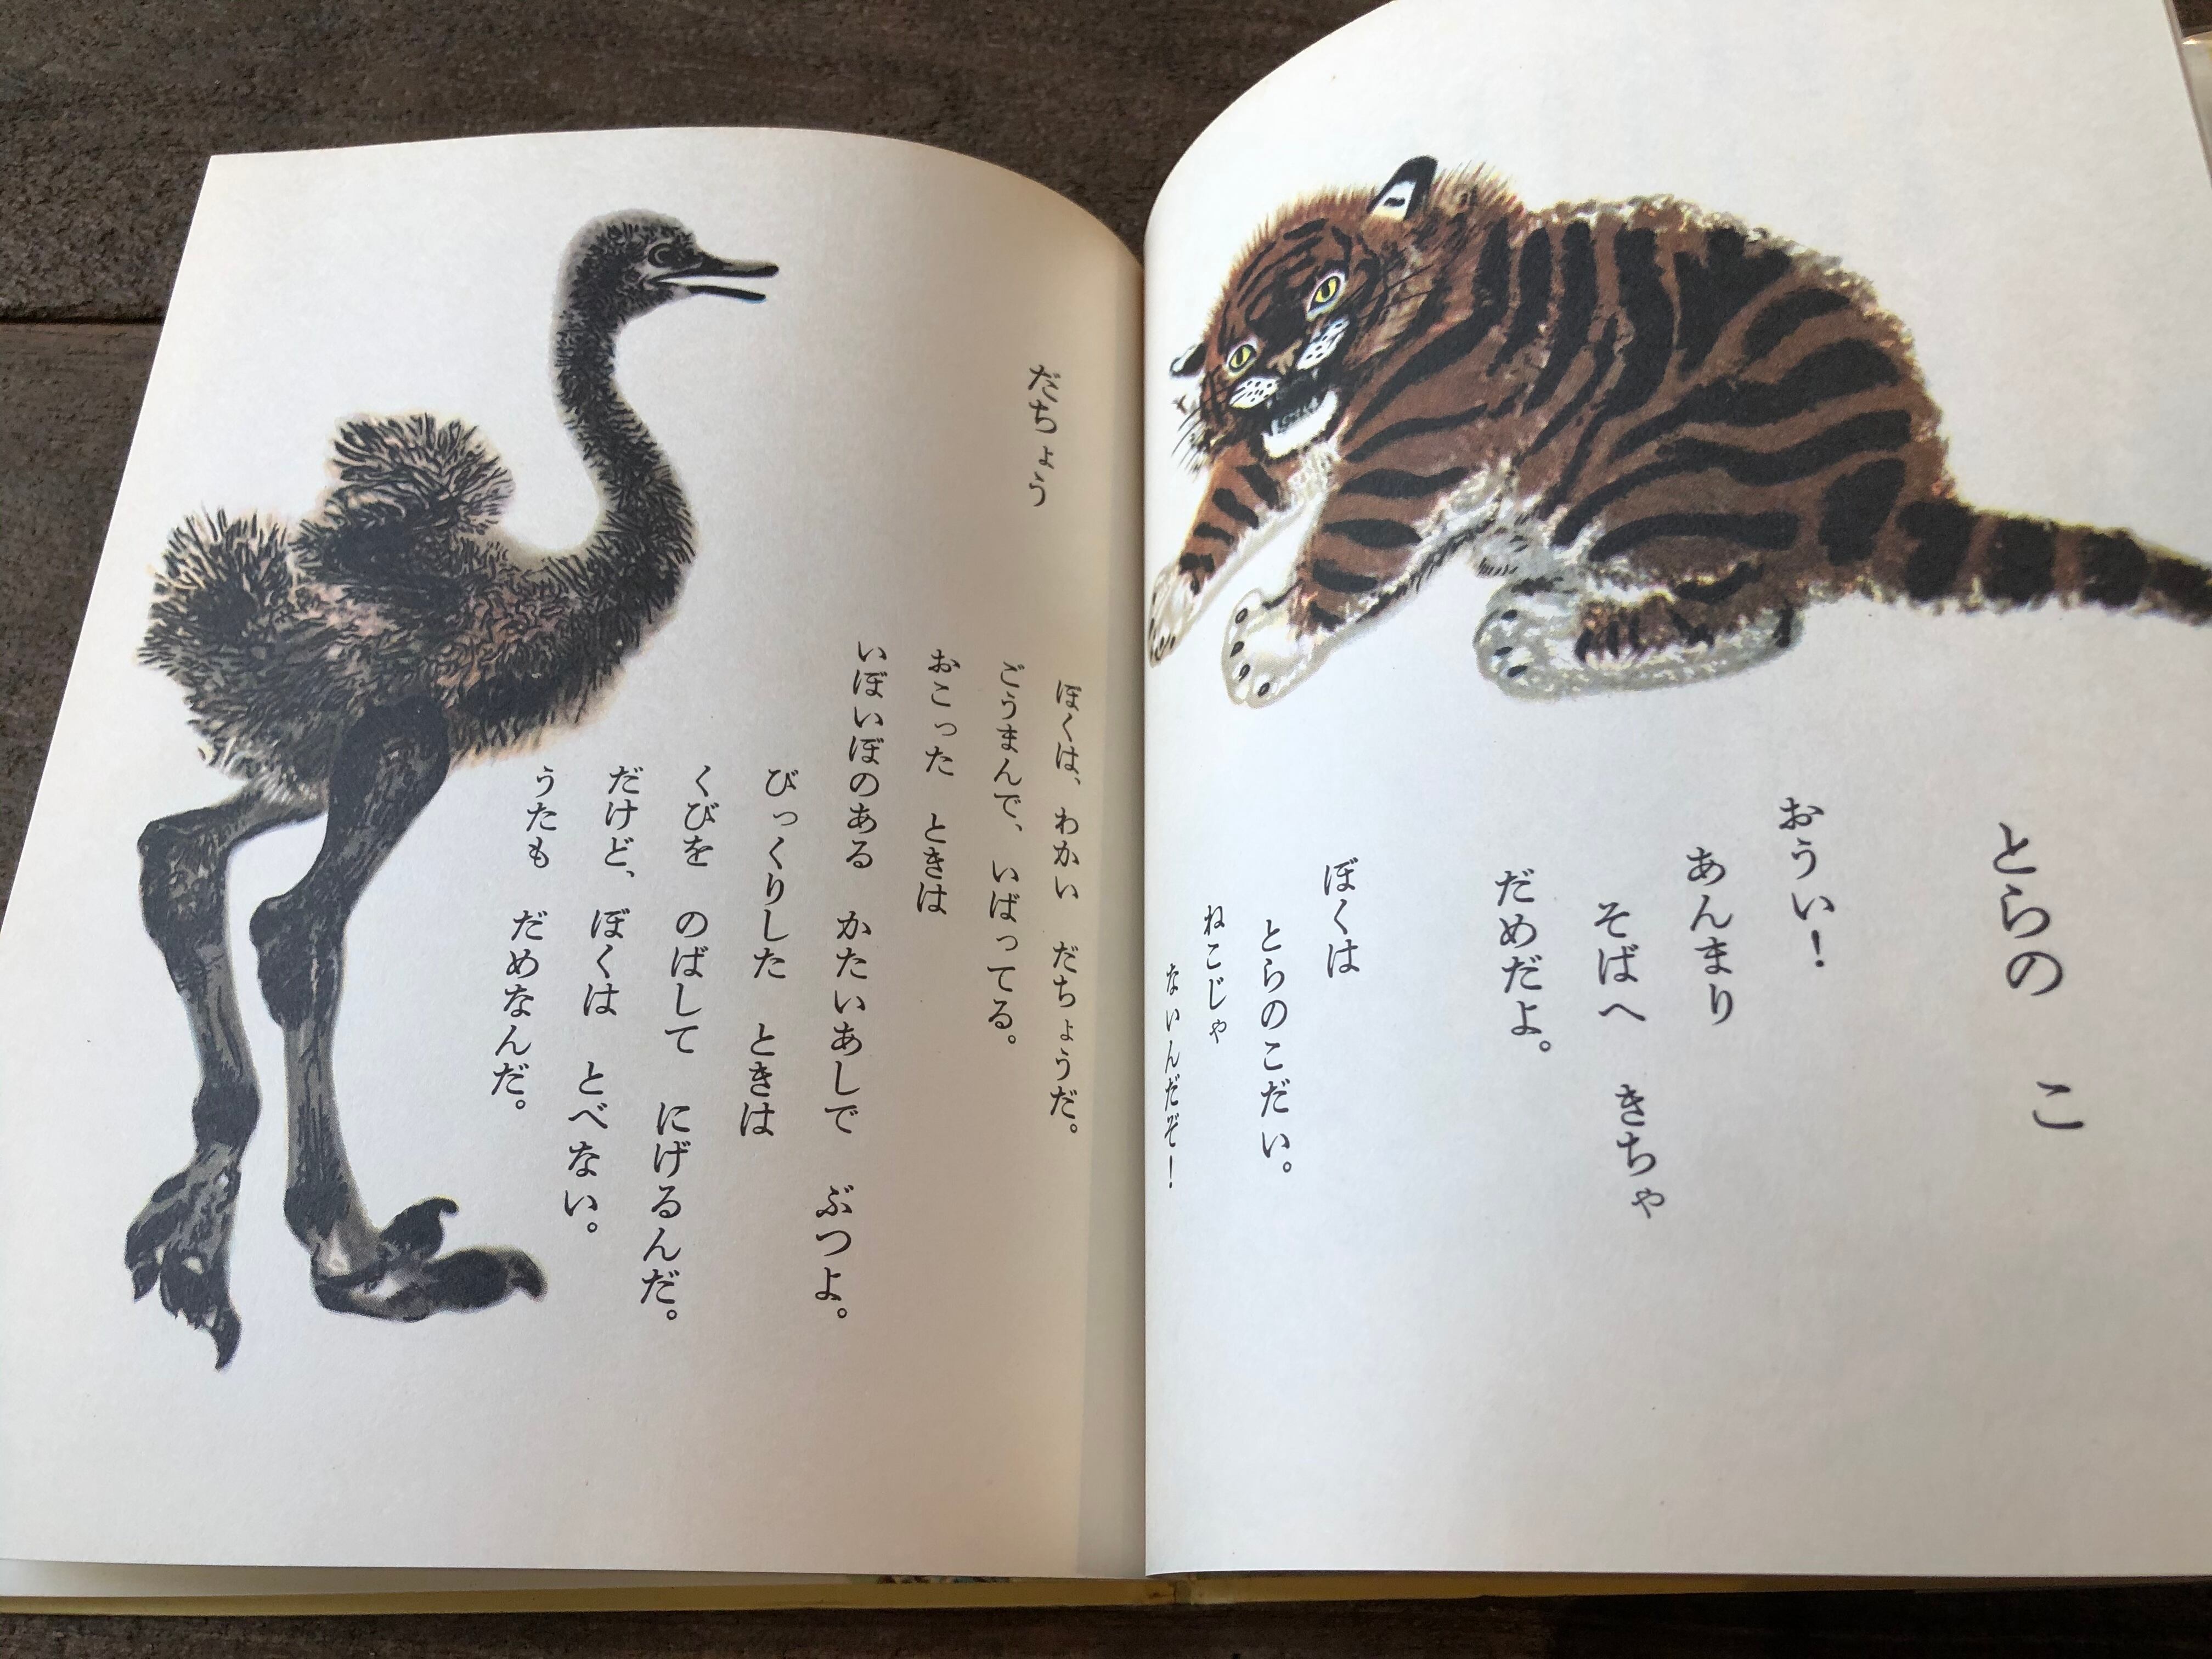 とらの　こ
おうい！
あんまり
そばへ　きちゃ
だめだよ。
ぼくは
とらのこだい。
ねこじゃ
ないんだぞ！
だちょう
ぼくは、わかい　だちょうだ。
ごうまんで、いばってる。
おこった　ときは
いぼいぼのある　かたいあしで　ぶつよ。
びっくりした　ときは
くびを　のばして　にげるんだ。
だけど、ぼくは　とべない。
うたも　だめなんだ。